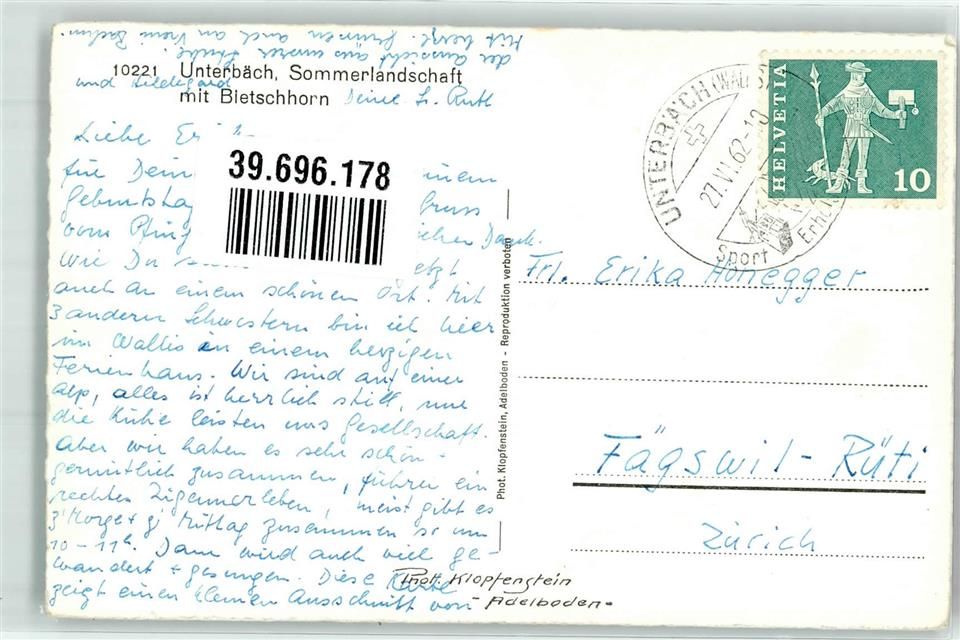 10221 Unterbäch, Sommerlandschaft
mit Bietschhorn
39.696.178
Liebe
für Dein inem
Geburtstag
vom Pfing Dank.
wie Du etzt
auch an einem schönen Ort. Mit
3 andern Schwestern bin ich hier
im Wallis in einem herzigen
Ferienhaus. Wir sind auf einer
Alp, alles ist herrlich still, nur
die Kühe leisten uns Gesellschaft.
Aber wir haben es sehr schön -
gemütlich zusammen, führen ein
rechtes Zigeunerleben, meist gibt es
z'Morge + z' Mittag zusammen so um
10 - 11h. Dann wird auch viel ge-
wandert + gesungen. Diese Karte
zeigt einen kleinen Ausschnitt von
der Aussicht aus unserer Stube.
Mit herzl. Grüssen auch an
und Hildegard
Deine Ruth
Phot. Klopfenstein, Adelboden - Reproduktion verboten
Phot. Klopfenstein
Adelboden-
UNTERBÄCH (WALLIS)
27.VI.62-10
Sport
HELVETIA
10
Frl. Erika Honegger
Fägswil-Rüti
Zürich